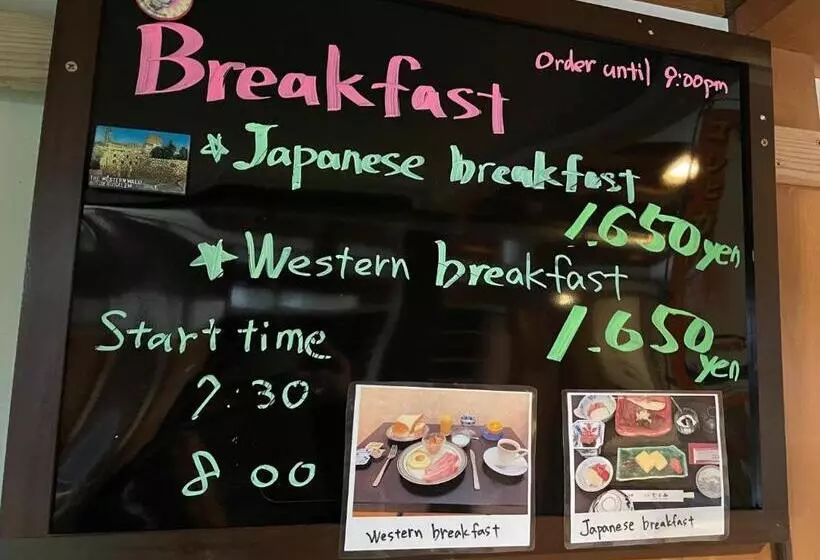 Breakfast
Order until 9:00pm
Japanese breakfast
1.650 yen
THE WESTERN WALL
JERUSALEM
Western breakfast
1.650 yen
Start time
7:30
8:00
Western breakfast
Japanese breakfast